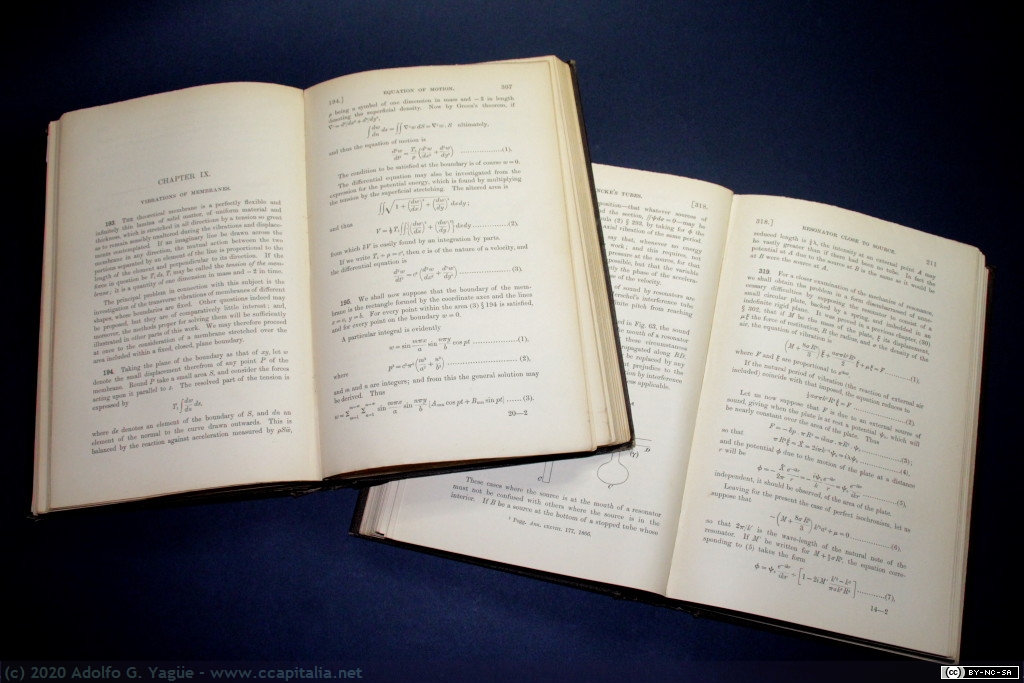 CHAPTER IX.
VIBRATIONS OF MEMBRANES.
193. THE theoretical membrane is a perfectly flexible and
infinitely thin lamina of solid matter, of uniform material and
thickness, which is stretched in all directions by a tension so great
as to remain sensibly unaltered during the vibrations and displace-
ments contemplated. If an imaginary line be drawn across the
membrane in any direction, the mutual action between the two
portions separated by an element of the line is proportional to the
length of the element and perpendicular to its direction. If the
force in question be T₁ ds, T₁ may be called the tension of the mem-
brane; it is a quantity of one dimension in mass and −2 in time.
The principal problem in connection with this subject is the
investigation of the transverse vibrations of membranes of different
shapes, whose boundaries are fixed. Other questions indeed may
be proposed, but they are of comparatively little interest; and,
moreover, the methods proper for solving them will be sufficiently
illustrated in other parts of this work. We may therefore proceed
at once to the consideration of a membrane stretched over the
area included within a fixed, closed, plane boundary.
194. Taking the plane of the boundary as that of xy, let w
denote the small displacement therefrom of any point P of the
membrane. Round P take a small area S, and consider the forces
acting upon it parallel to z. The resolved part of the tension is
expressed by
T₁ ∫ dw/dn ds,
where ds denotes an element of the boundary of S, and dn an
element of the normal to the curve drawn outwards. This is
balanced by the reaction against acceleration measured by ρSẅ,
194.] EQUATION OF MOTION. 307
ρ being a symbol of one dimension in mass and −2 in length
denoting the superficial density. Now by Green's theorem, if
∇² = d²/dx² + d²/dy²,
∫ dw/dn ds = ∫∫ ∇²w dS = ∇²w . S ultimately,
and thus the equation of motion is
d²w/dt² = T₁/ρ (d²w/dx² + d²w/dy²) ..................(1).
The condition to be satisfied at the boundary is of course w = 0.
The differential equation may also be investigated from the
expression for the potential energy, which is found by multiplying
the tension by the superficial stretching. The altered area is
∫∫ √{1 + (dw/dx)² + (dw/dy)²} dx dy;
and thus
V = ½ T₁ ∫∫ {(dw/dx)² + (dw/dy)²} dx dy ..................(2),
from which δV is easily found by an integration by parts.
If we write T₁ ÷ ρ = c², then c is of the nature of a velocity, and
the differential equation is
d²w/dt² = c² (d²w/dx² + d²w/dy²) ..................(3).
195. We shall now suppose that the boundary of the mem-
brane is the rectangle formed by the coordinate axes and the lines
x = a, y = b. For every point within the area (3) § 194 is satisfied,
and for every point on the boundary w = 0.
A particular integral is evidently
w = sin mπx/a sin nπy/b cos pt ..................(1),
where
p² = c²π² (m²/a² + n²/b²) ..................(2),
and m and n are integers; and from this the general solution may
be derived. Thus
w = Σ Σ sin mπx/a sin nπy/b {Aₘₙ cos pt + Bₘₙ sin pt} ......(3).
20—2
TUBES. [318.
position—that whatever sources of
y that, whenever so energy
work; and this requires, not
pressure at the source, for that
possible, but that the variable
the phase of the acceleration
of the velocity.
of sound by resonators are
Herschel's interference tube
finite pitch from reaching
in Fig. 63, the sound
the mouth of a resonator
these circumstances
propagated along BD.
be replaced by any
prejudice to the
tion by interference
applicable.
D
(γ)
C
C
These cases where the source is at the mouth of a resonator
must not be confused with others where the source is in the
interior. If B be a source at the bottom of a stopped tube whose
¹ Pogg. Ann. 177, 1866.
318.] RESONATOR CLOSE TO SOURCE. 211
reduced length is ¼λ, the intensity at an external point A may
be vastly greater than if there had been no tube. In fact the
potential at A due to the source at B is the same as it would be
at B were the source at A.
319. For a closer examination of the mechanics of resonance,
we shall obtain the problem in a form disembarrassed of unne-
cessary difficulties by supposing the resonator to consist of a
small circular plate, backed by a spring, and imbedded in an
indefinite rigid plane. It was proved in a previous chapter, (30)
§ 302, that if M be the mass of the plate, ξ its displacement,
μξ the force of restitution, R the radius, and σ the density of the
air, the equation of vibration is
where F and ξ are proportional to
If the natural period of vibration (the reaction of external air
included) coincide with that imposed, the equation reduces to
Let us now suppose that F is due to an external source of
sound, giving when the plate is at rest a potential ψ₀, which will
be nearly constant over the area of the plate. Thus
so that
and the potential φ due to the motion of the plate at a distance
r will be
independent, it should be observed, of the area of the plate.
Leaving for the present the case of perfect isochronism, let us
suppose that
so that 2π/k' is the wave-length of the natural note of the
resonator. If M' be written for M + ⅔σR³, the equation corre-
sponding to (5) takes the form
14—2
(c) 2020 Adolfo G. Yagüe - www.ccapitalia.net
cc BY-NC-SA